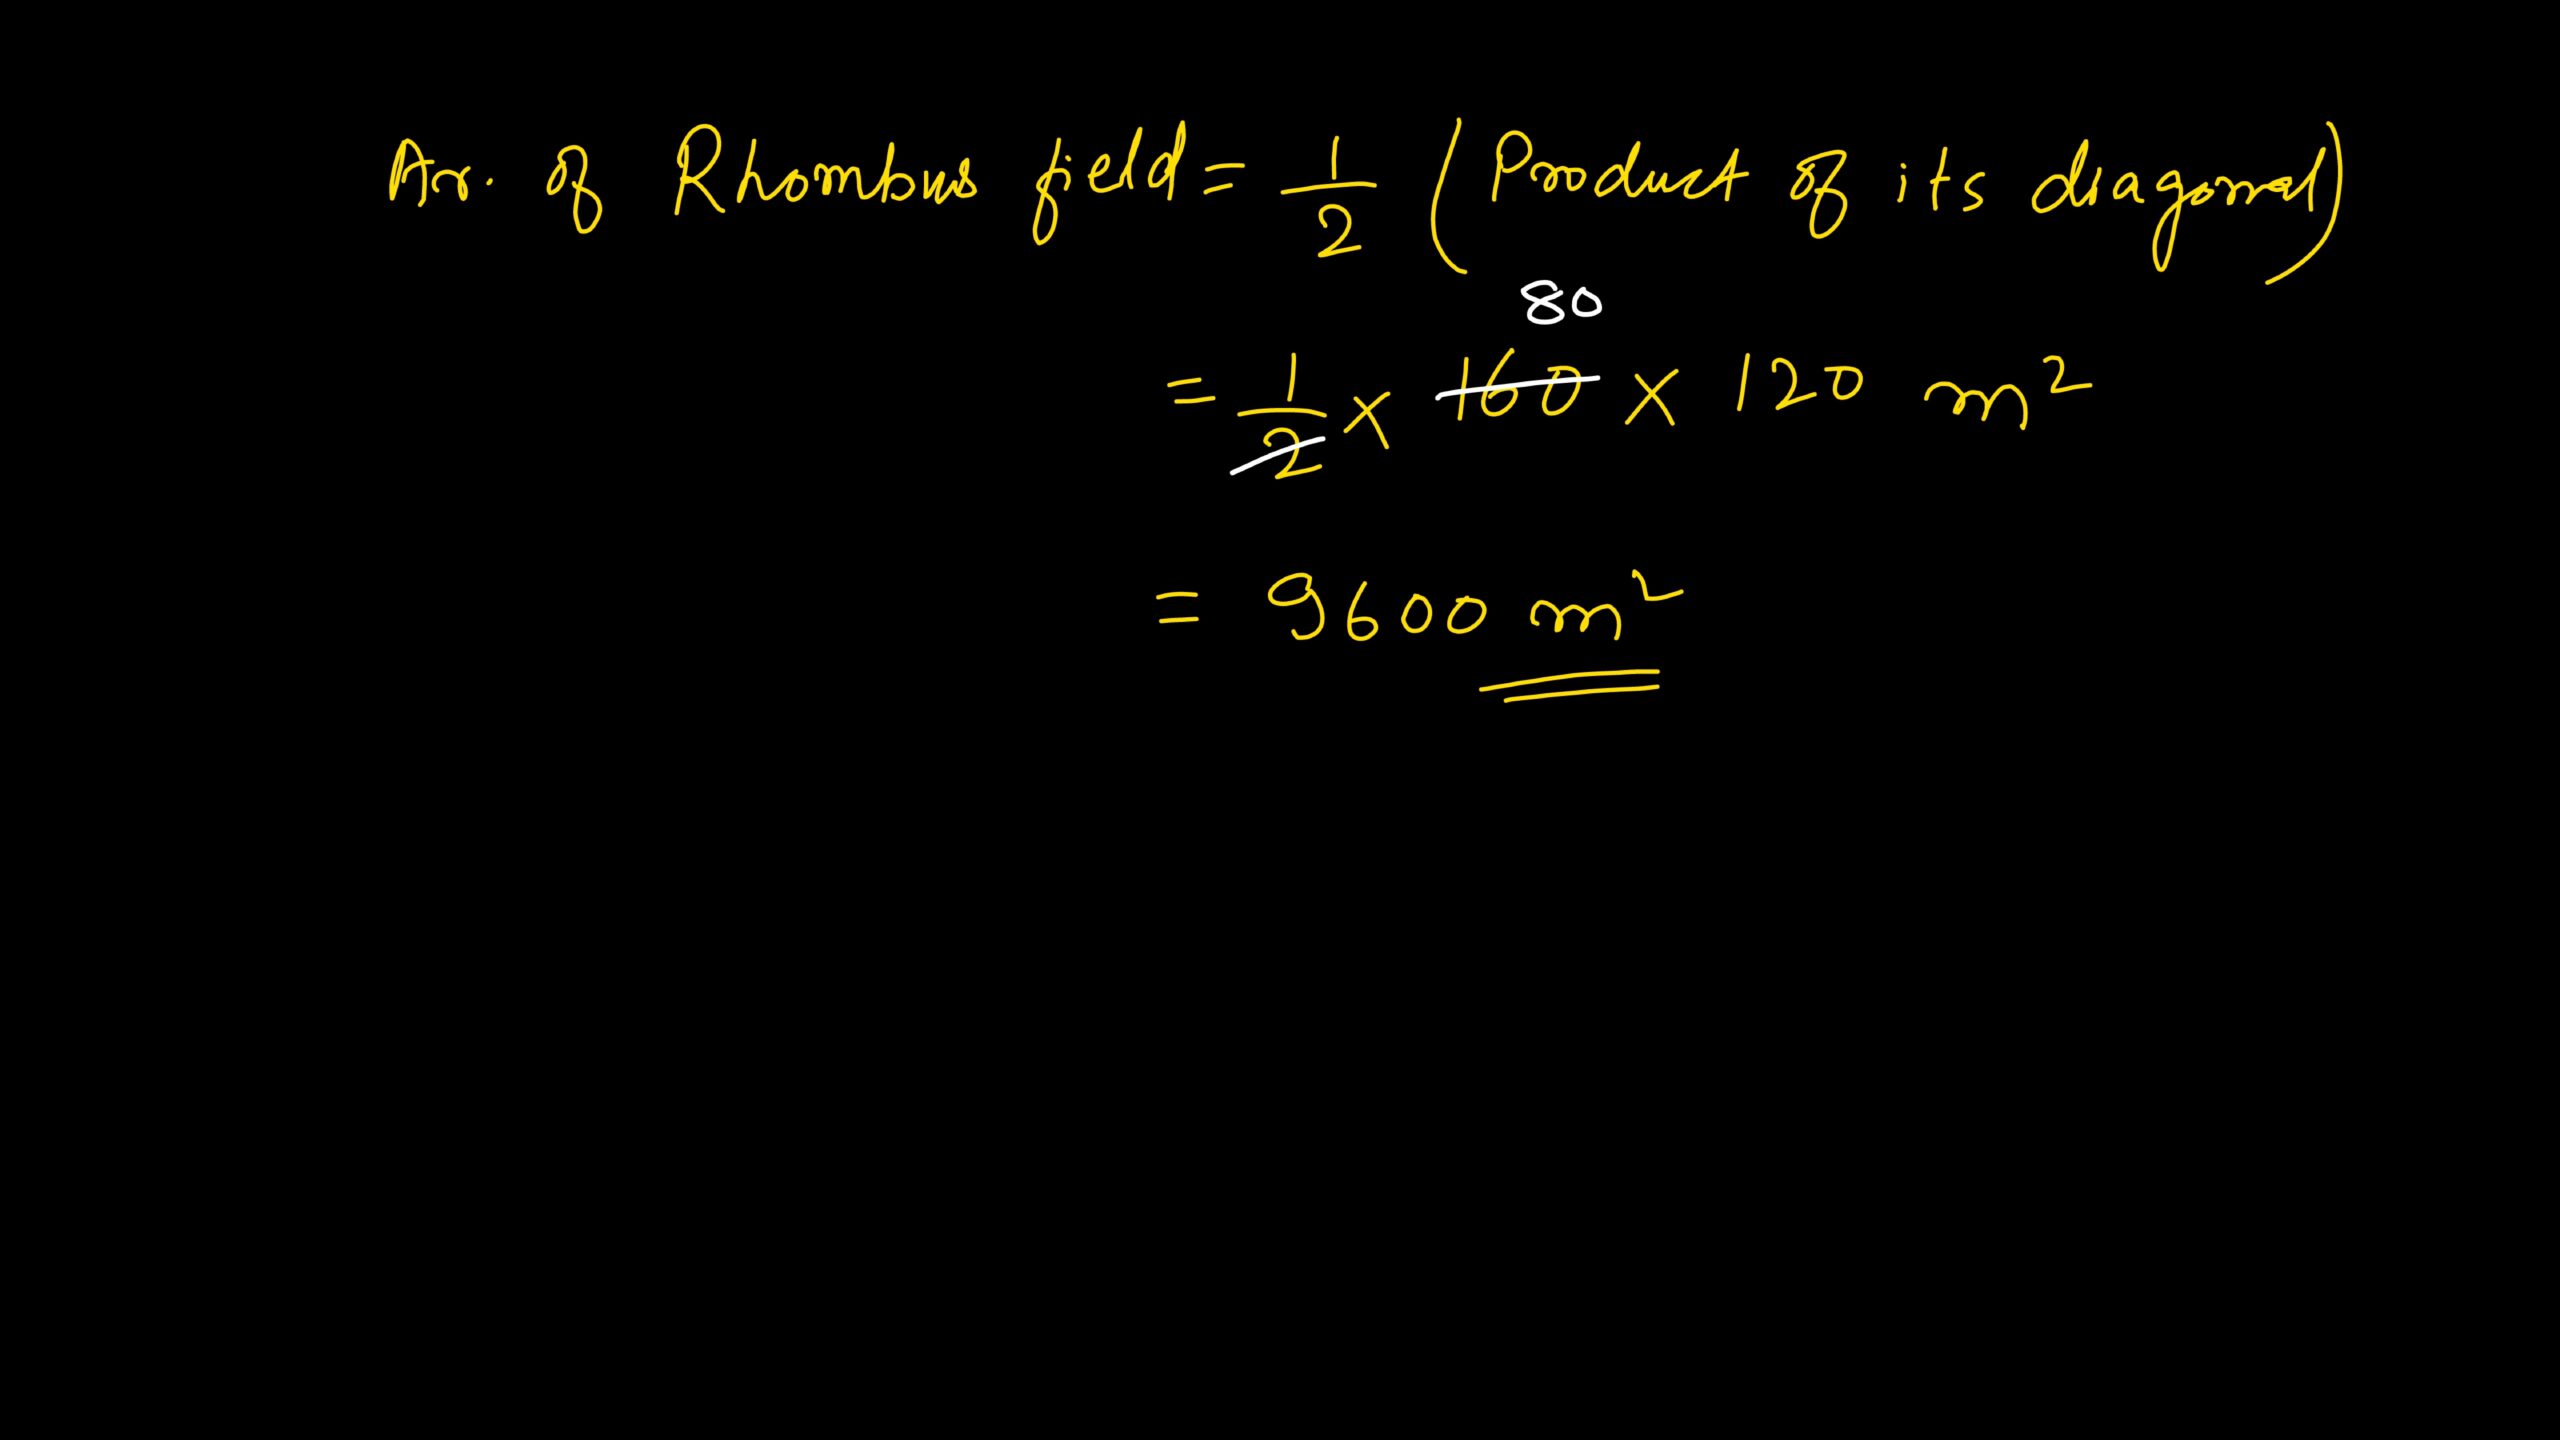 Ar. of Rhombus field = 1/2 (Product of its diagonal)
80
= 1/2 × 160 × 120 m²
= 9600 m²